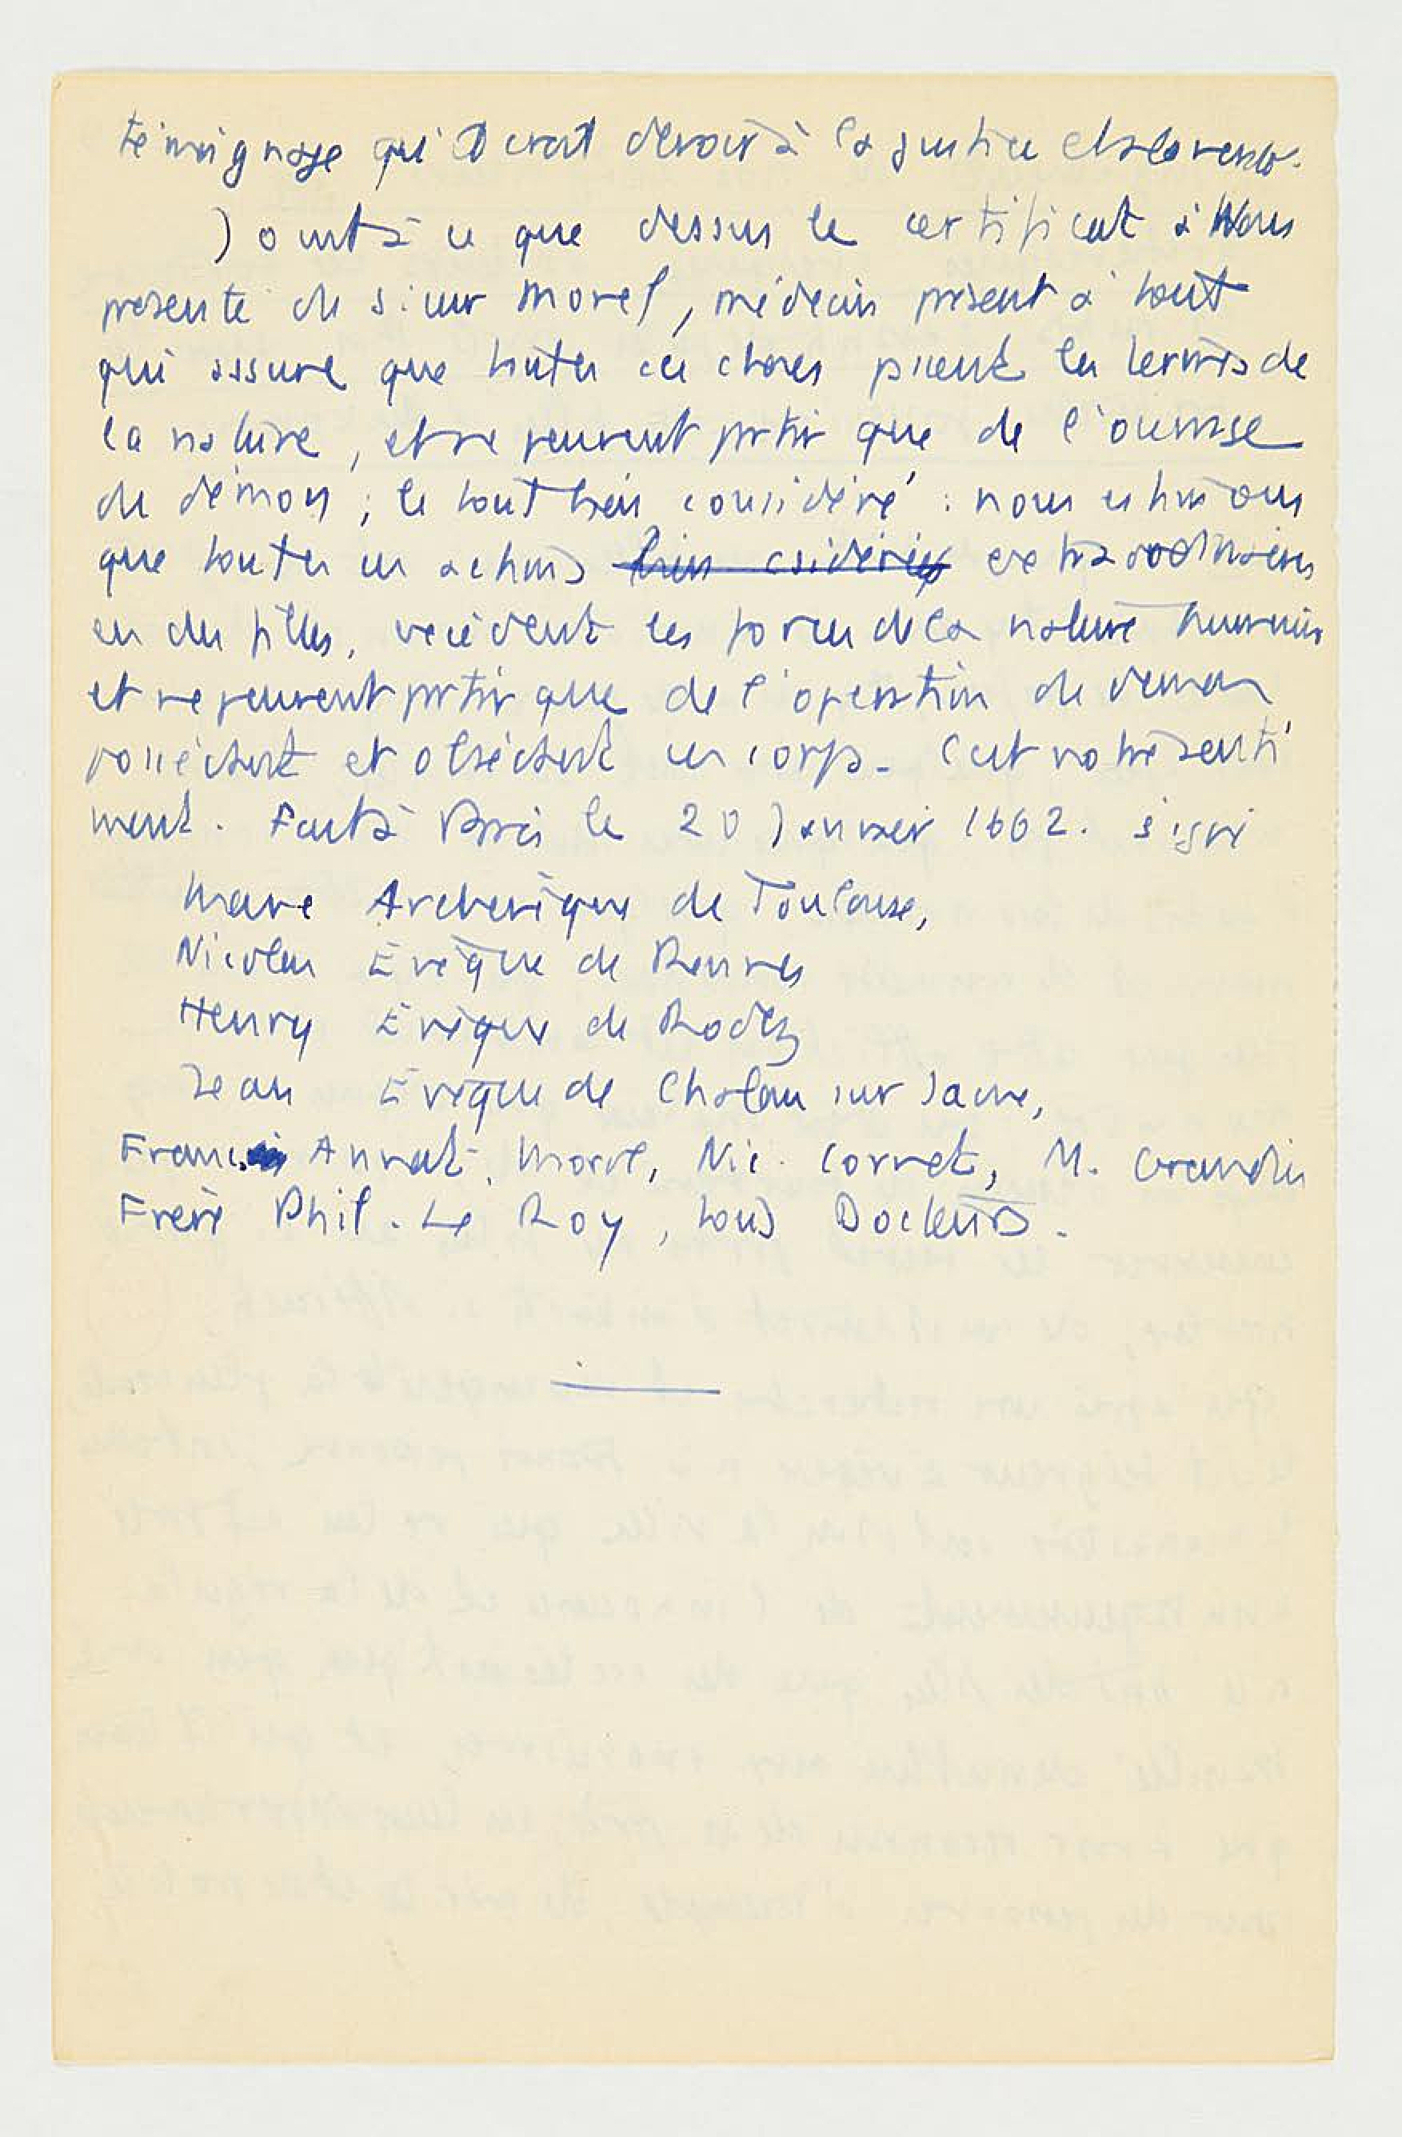 témoignage qu'il croit devoir à la justice et à la
Joint à ce que dessus le certificat à Nous
présenté du sieur Morel, médecin présent à tout
qui assure que toutes ces choses passent les termes de
la nature, et ne peuvent partir que de l'ouvrage
du démon ; le tout bien considéré : nous estimons
que toutes ces actions extraordinaires
en des filles, excèdent les forces de la nature humaine
et ne peuvent partir que de l'opération du démon
possédant et obsédant ces corps. C'est notre senti
ment. Fait à Paris le 20 Janvier 1662. signé
Marc Archevêque de Toulouse,
Nicolas Evêque de Rennes
Henry Evêque de Rodez
Jean Evêque de Chalon sur Saone,
François Annat, Morel, Nic. Cornet, M. Grandin
Frère Phil. Le Roy, tous Docteurs.